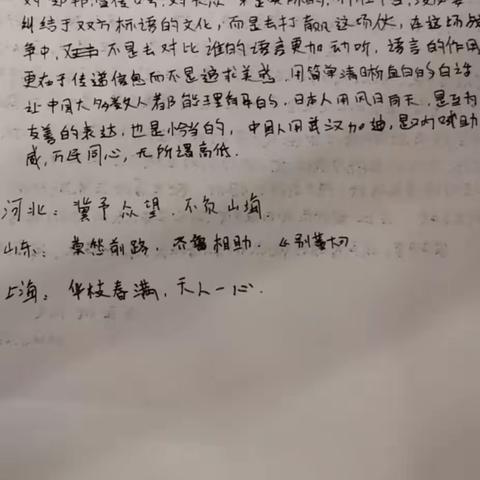 纠结于双方标语的文化,而是去打赢这场仗,在这场战
争中,不是去对比谁的语言更加动听,语言的作用
更在于传递信息而不是追求美感,用简单清晰直白的白话
让中国大多数人都能理解的,日本人用风月同天,是更为
友善的表达,也是恰当的,中国人用武汉加油,是呐喊助
威,万民同心,无所谓高低.
河北:冀予众望,不负山海.
山东:前路,相助.
上海:华枝春满,天人一心.